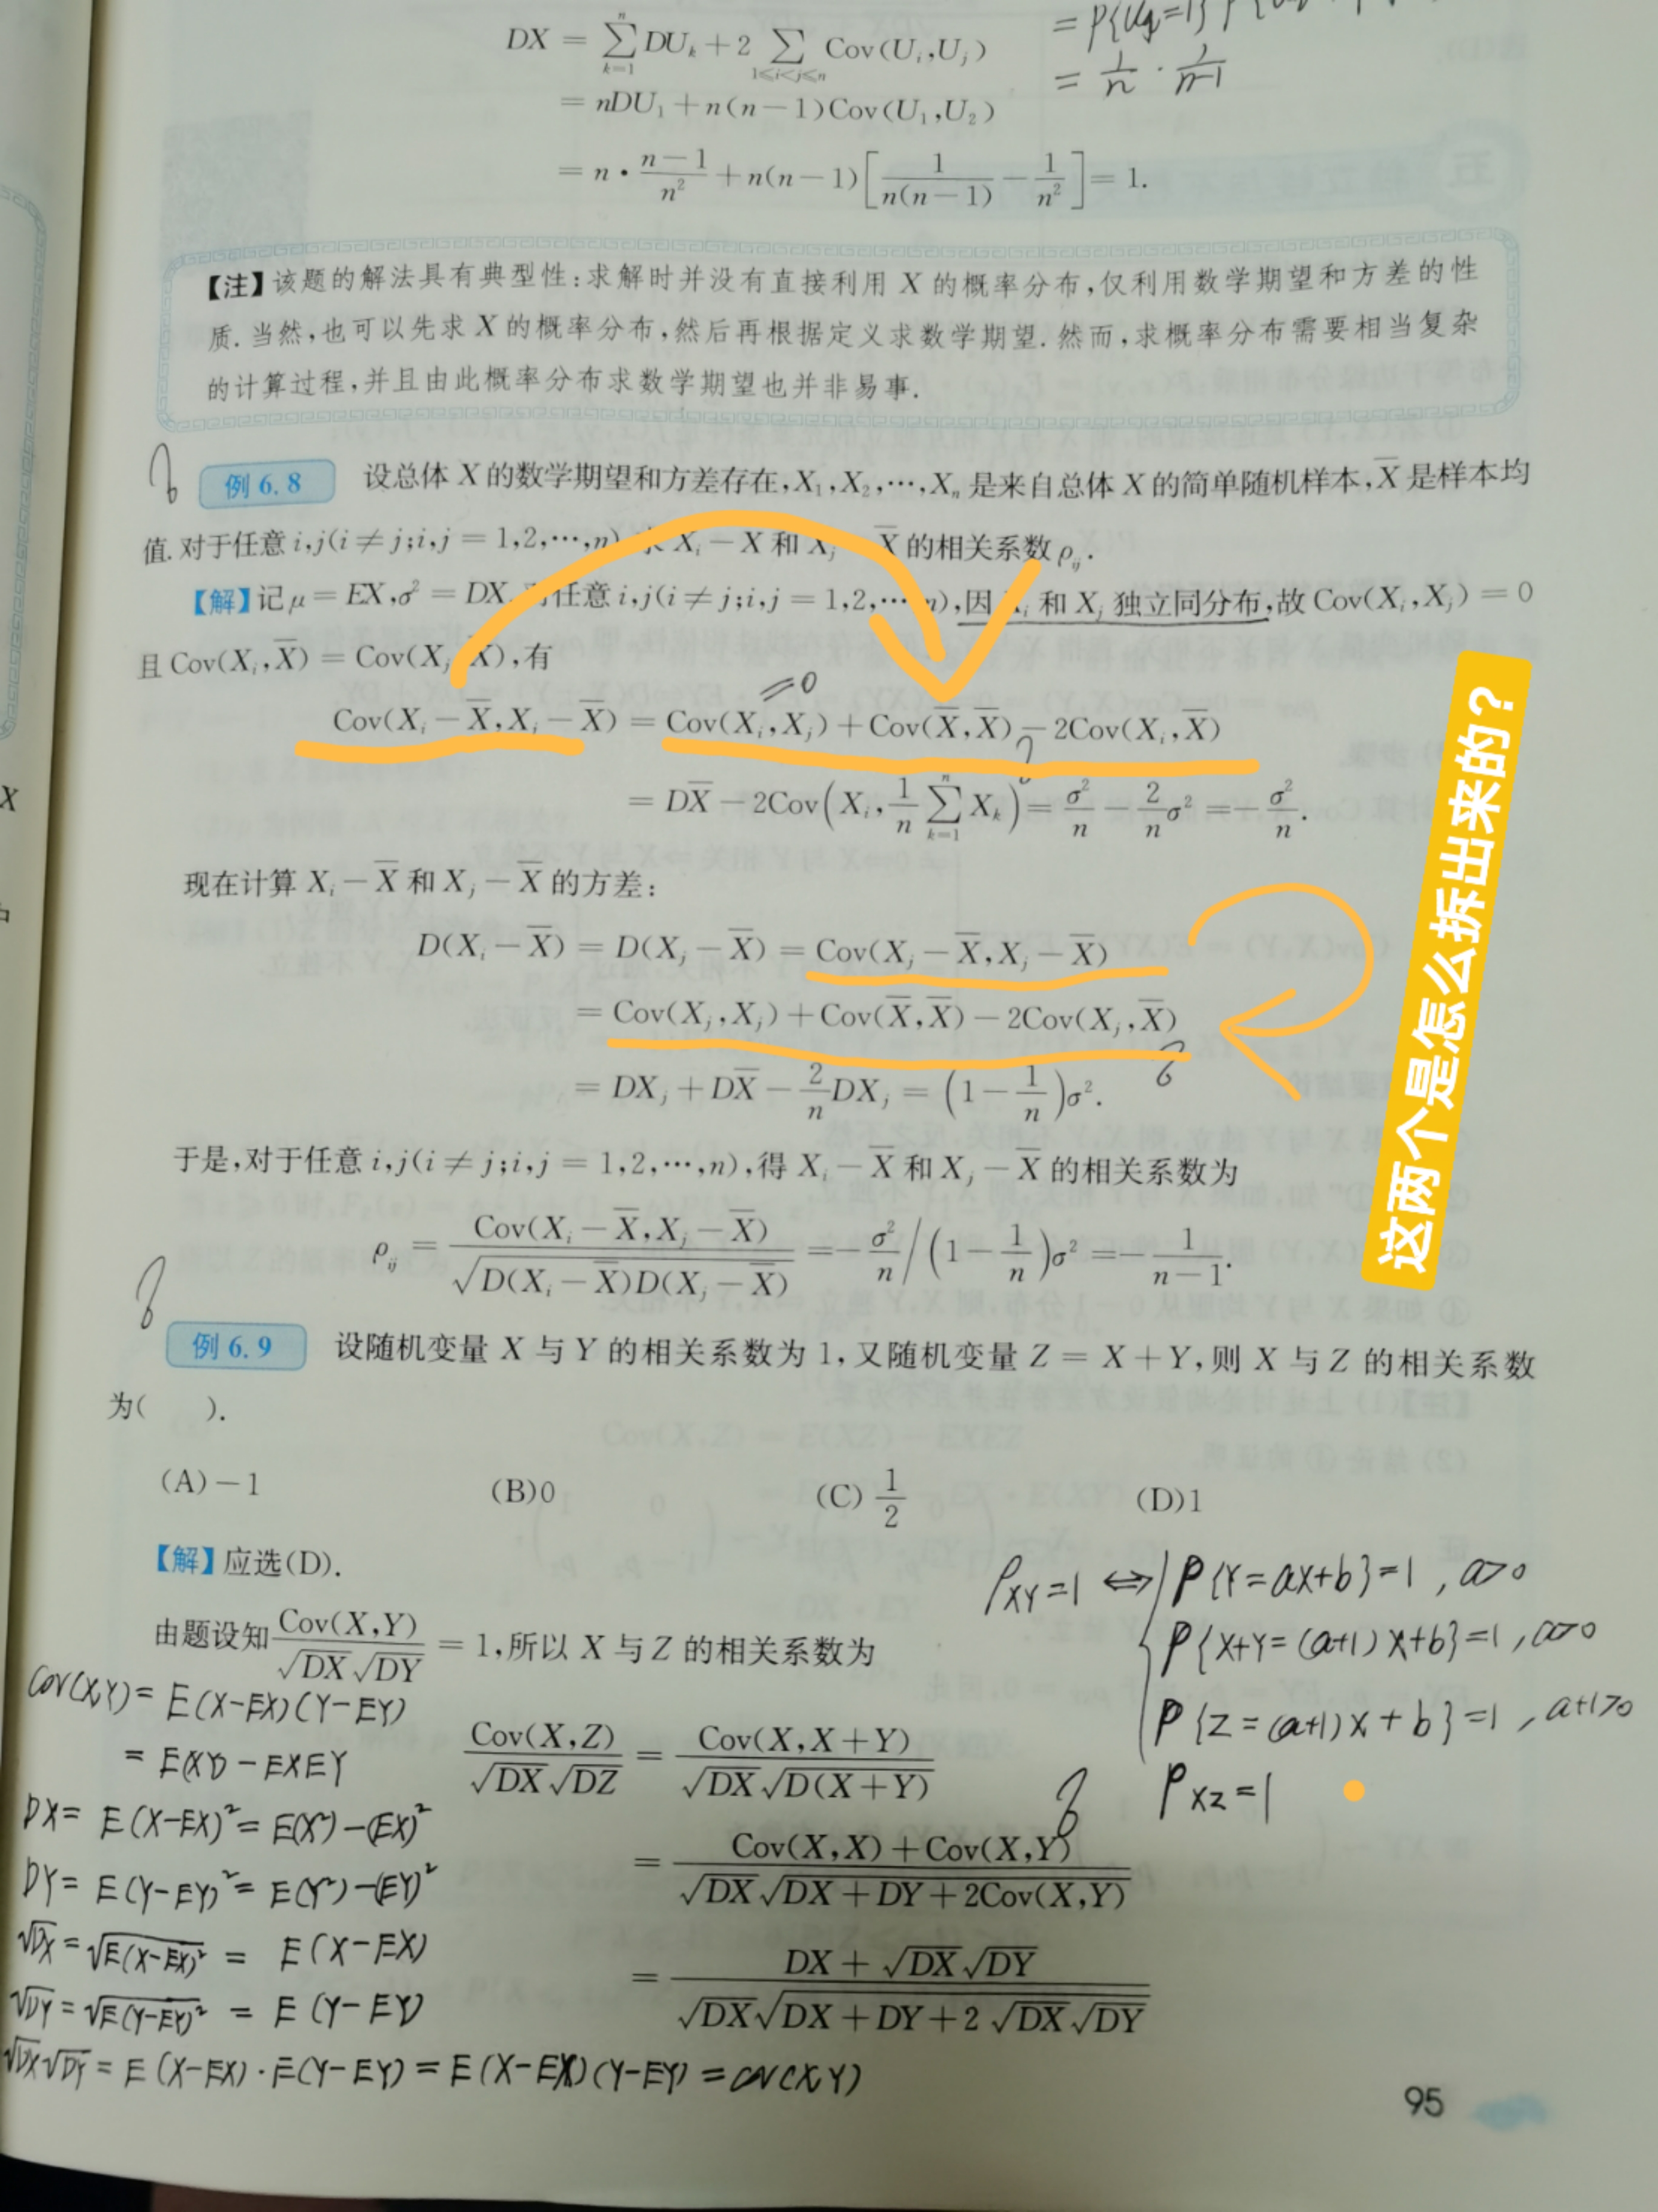 DX = \sum_{k=1}^{n} DU_k + 2 \sum_{1≤i<j≤n} Cov(U_i,U_j)
= nDU_1 + n(n-1)Cov(U_1,U_2)
= n · \frac{n-1}{n^2} + n(n-1)[\frac{1}{n(n-1)} - \frac{1}{n^2}] = 1.
= \frac{1}{n} · \frac{1}{n-1}
【注】该题的解法具有典型性:求解时并没有直接利用 X 的概率分布,仅利用数学期望和方差的性
质.当然,也可以先求 X 的概率分布,然后再根据定义求数学期望.然而,求概率分布需要相当复杂
的计算过程,并且由此概率分布求数学期望也并非易事.
例 6.8 设总体 X 的数学期望和方差存在,X_1,X_2,…,X_n 是来自总体 X 的简单随机样本,\bar{X} 是样本均
值.对于任意 i,j(i≠j;i,j = 1,2,…,n) X_i - X 和 X_j \bar{X} 的相关系数 ρ_{ij}.
【解】记 μ = EX,σ^2 = DX. 任意 i,j(i≠j;i,j = 1,2,…,n),因 X_i 和 X_j 独立同分布,故 Cov(X_i,X_j) = 0
且 Cov(X_i,\bar{X}) = Cov(X_j,\bar{X}),有
=0
Cov(X_i - \bar{X},X_j - \bar{X}) = Cov(X_i,X_j) + Cov(\bar{X},\bar{X}) - 2Cov(X_i,\bar{X})
= D\bar{X} - 2Cov(X_i,\frac{1}{n}\sum_{k=1}^{n} X_k) = \frac{σ^2}{n} - \frac{2}{n}σ^2 = -\frac{σ^2}{n}.
现在计算 X_i - \bar{X} 和 X_j - \bar{X} 的方差:
D(X_i - \bar{X}) = D(X_j - \bar{X}) = Cov(X_j - \bar{X},X_j - \bar{X})
= Cov(X_j,X_j) + Cov(\bar{X},\bar{X}) - 2Cov(X_j,\bar{X})
= DX_j + D\bar{X} - \frac{2}{n}DX_j = (1 - \frac{1}{n})σ^2.
这两个是怎么拆出来的?
于是,对于任意 i,j(i≠j;i,j = 1,2,…,n),得 X_i - \bar{X} 和 X_j - \bar{X} 的相关系数为
ρ_{ij} = \frac{Cov(X_i - \bar{X},X_j - \bar{X})}{\sqrt{D(X_i - \bar{X})D(X_j - \bar{X})}} = -\frac{σ^2}{n}/(1 - \frac{1}{n})σ^2 = -\frac{1}{n-1}.
例 6.9 设随机变量 X 与 Y 的相关系数为 1,又随机变量 Z = X + Y,则 X 与 Z 的相关系数
为( ).
(A) -1 (B)0 (C) \frac{1}{2} (D)1
【解】应选(D).
由题设知 \frac{Cov(X,Y)}{\sqrt{DX}\sqrt{DY}} = 1,所以 X 与 Z 的相关系数为
\frac{Cov(X,Z)}{\sqrt{DX}\sqrt{DZ}} = \frac{Cov(X,X+Y)}{\sqrt{DX}\sqrt{D(X+Y)}}
= \frac{Cov(X,X) + Cov(X,Y)}{\sqrt{DX}\sqrt{DX + DY + 2Cov(X,Y)}}
= \frac{DX + \sqrt{DX}\sqrt{DY}}{\sqrt{DX}\sqrt{DX + DY + 2\sqrt{DX}\sqrt{DY}}}
ρ_{XY}=1 ⇔ P{Y=ax+b}=1 , a>0
P{X+Y=(a+1)x+b}=1 , a>0
P{Z=(a+1)x+b}=1 , a+1>0
ρ_{XZ}=1
Cov(X,Y)= E(X-EX)(Y-EY)
= E(XY)-EXEY
DX= E(X-EX)^2= E(X^2)-(EX)^2
DY= E(Y-EY)^2= E(Y^2)-(EY)^2
\sqrt{DX}=\sqrt{E(X-EX)^2} = E(X-EX)
\sqrt{DY}=\sqrt{E(Y-EY)^2} = E(Y-EY)
\sqrt{DX}\sqrt{DY} = E(X-EX)·E(Y-EY) = E(X-EX)(Y-EY) = cov(X,Y)
95